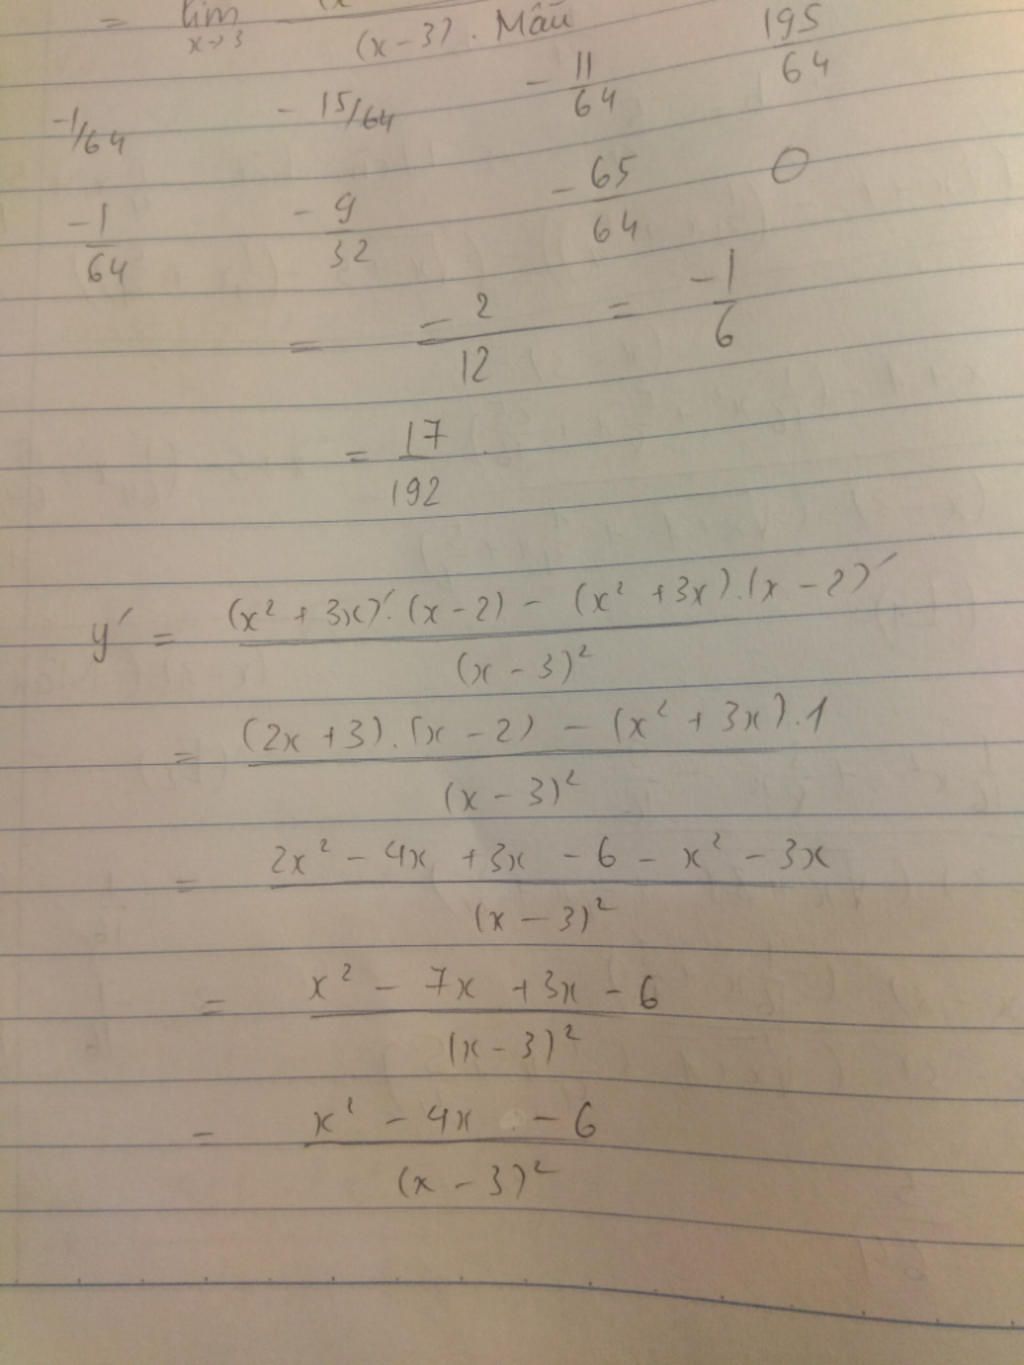 = lim x→3 (x / (x-3). Mẫu
-1/64 - 15/64 - 11/64 195/64
-1/64 - 9/32 - 65/64 0
= -2/12 = -1/6
= 17/192
y' = (x² + 3x)'.(x - 2) - (x² + 3x).(x - 2)' / (x - 3)²
= (2x + 3).(x - 2) - (x² + 3x).1 / (x - 3)²
= 2x² - 4x + 3x - 6 - x² - 3x / (x - 3)²
= x² - 7x + 3x - 6 / (x - 3)²
= x² - 4x - 6 / (x - 3)²